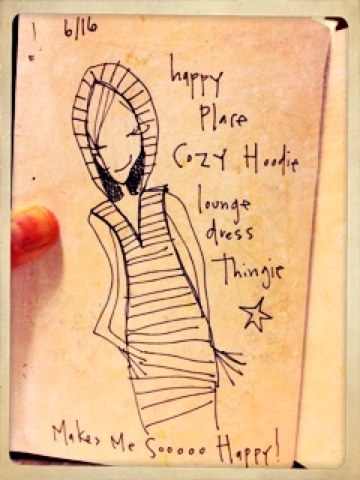 ! 6/16
happy
Place
Cozy Hoodie
lounge
dress
Thingie
Makes Me Sooooo Happy!